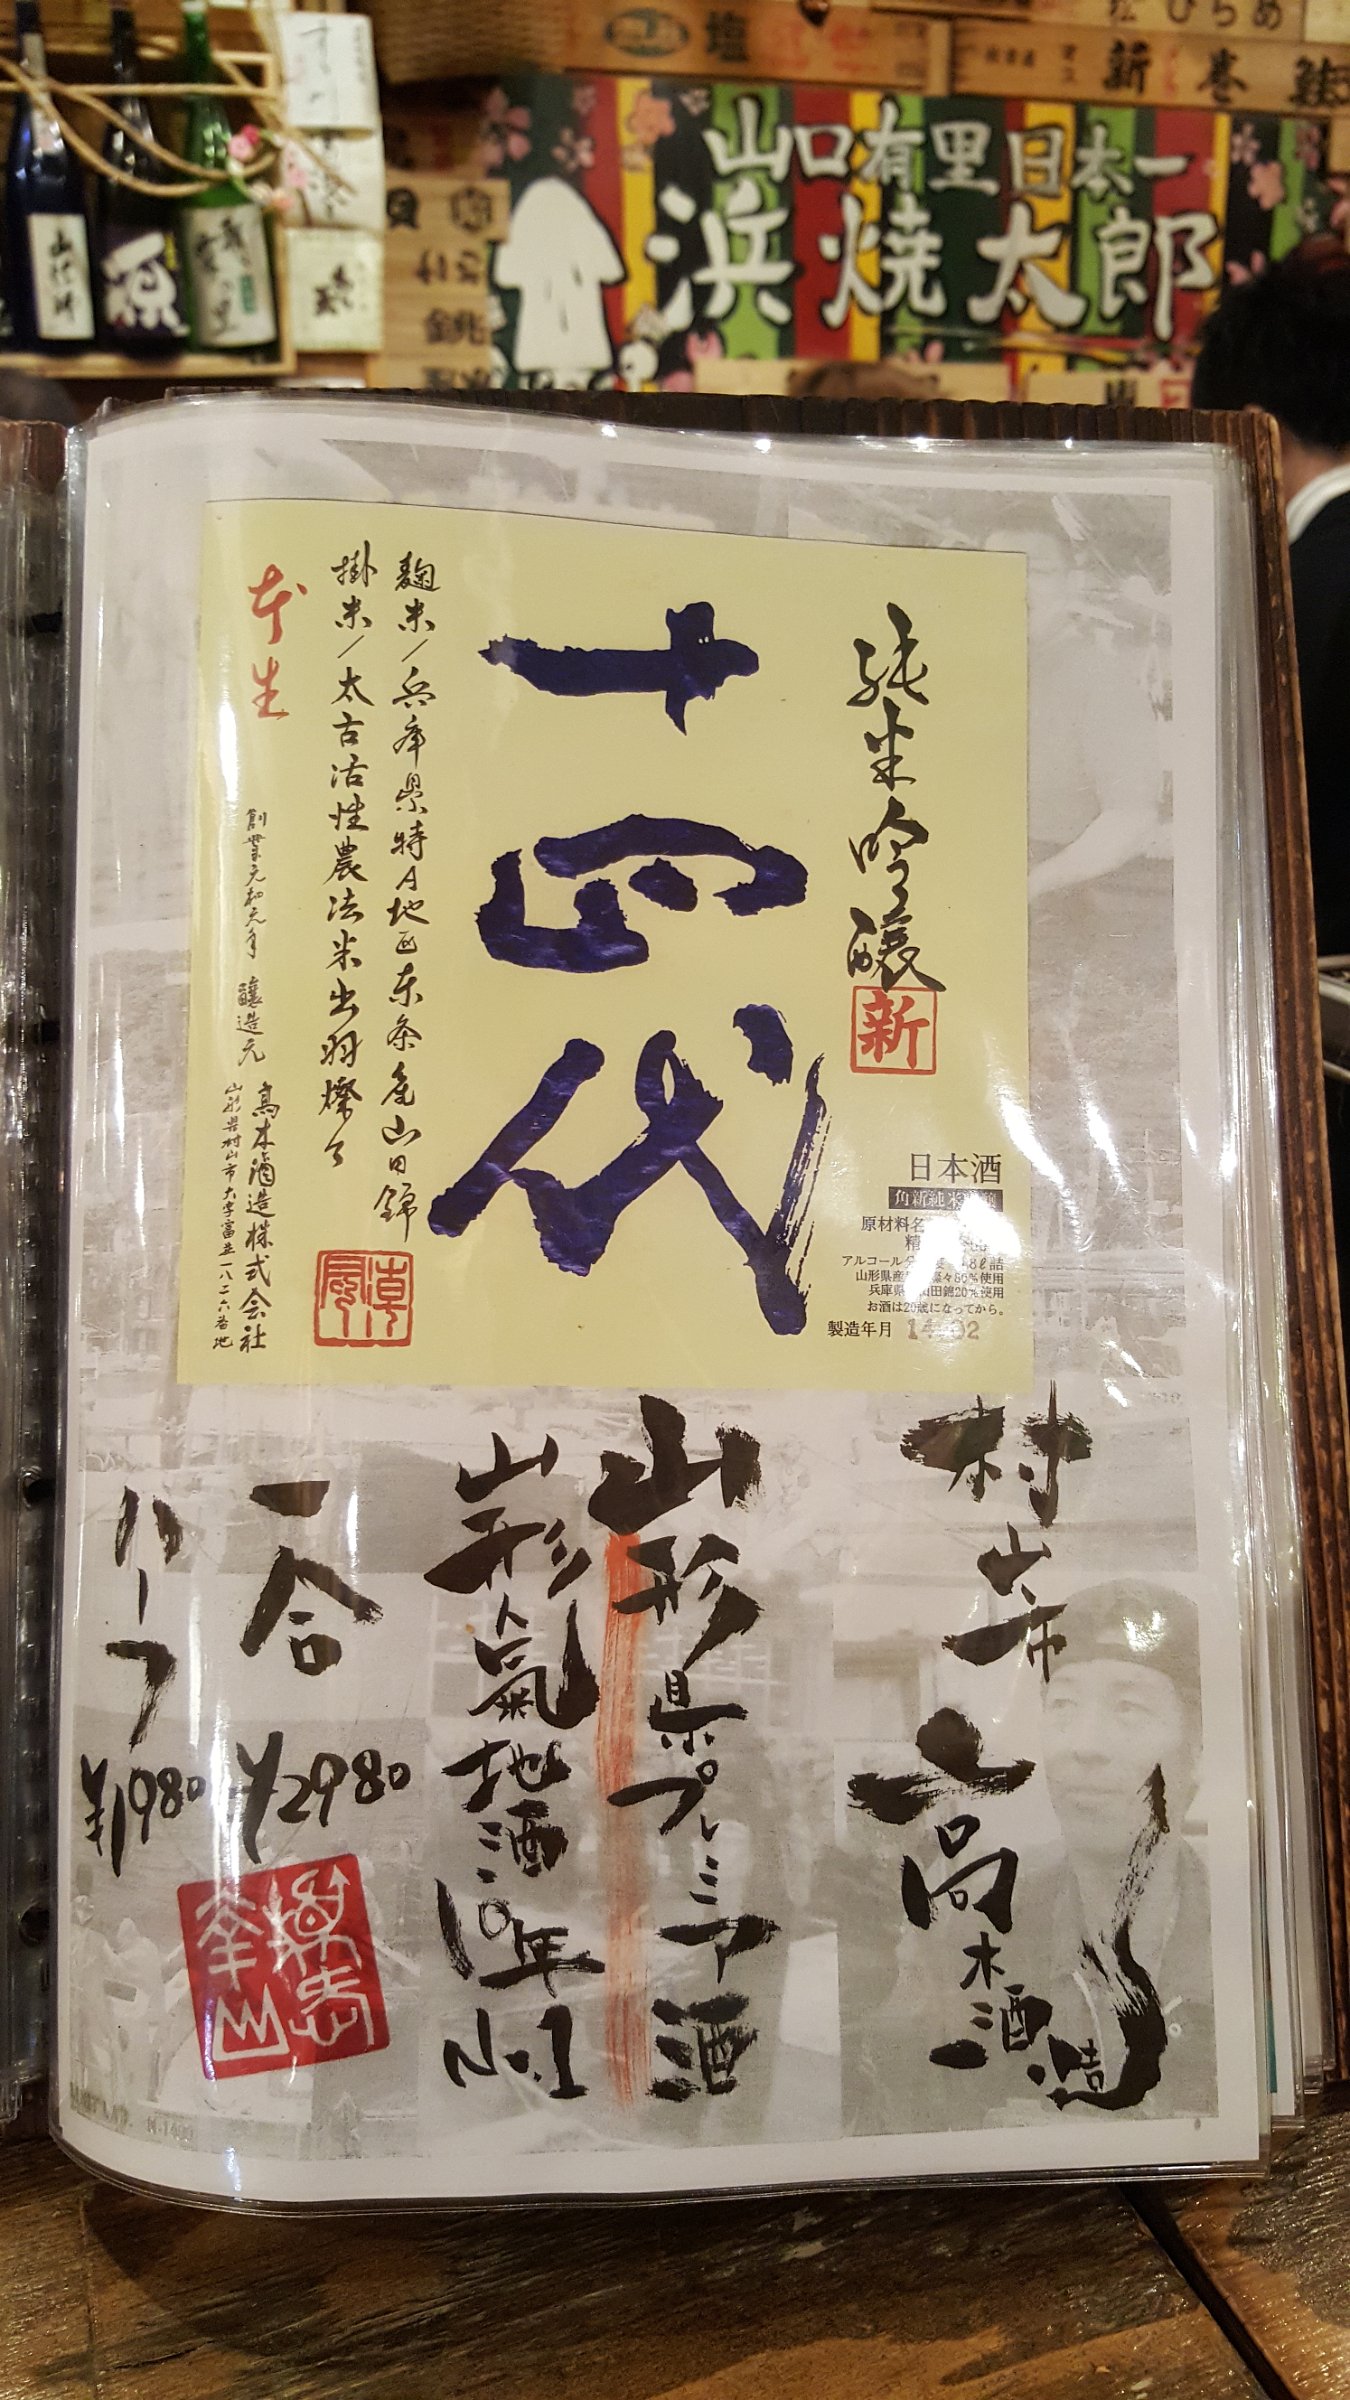 塩
新巻鮭
山口有里日本一
浜焼太郎
純米吟醸
新
十四代
麹米/兵庫県特A地区東条産山田錦
掛米/太古活性農法米出羽燦々
本生
創業元和元年 醸造元 高木酒造株式会社
山形県村山市大字富並一八二六番地
日本酒
角新純米
原材料名
精
アルコール分
山形県産 々80%使用
兵庫県 山田錦20%使用
お酒は20歳になってから。
製造年月 14.02
村山市 高木酒造
山形県プレミア酒
山形人氣地酒10年No.1
一合 ¥2980
ハーフ ¥1980